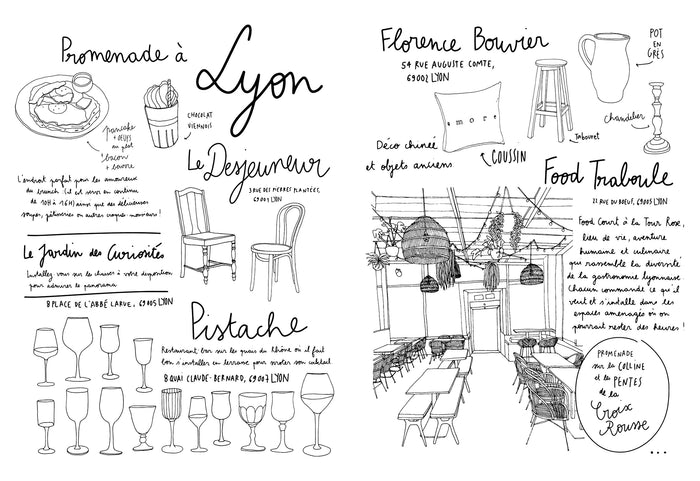 Promenade à
Lyon
pancake
+ OEUFS
au plat
+ bacon
+ beurre
CHOCOLAT
VIENNOIS
Le Desjeuneur
3 RUE DES PIERRES PLANTÉES,
69001 LYON
L'endroit parfait pour les amoureux
du brunch (il est servi en continu
de 10H à 16H) ainsi que des délicieuses
soupes, pâtisseries ou autres croques-monsieur !
Le Jardin des Curiosités
Installez vous sur les chaises à votre disposition
pour admirer le panorama
8 PLACE DE L'ABBÉ LARUE, 69005 LYON
Pistache
Restaurant bar sur les quais du Rhône où il faut
bon s'installer en terrasse pour siroter son cocktail
8 QUAI CLAUDE-BERNARD, 69007 LYON
Florence Bouvier
54 RUE AUGUSTE COMTE,
69002 LYON
POT
EN
GRÈS
amore
Tabouret
Chandelier
Déco chinée
et objets anciens.
COUSSIN
Food Traboule
22 RUE DU BOEUF, 69005 LYON
Food Court à la Tour Rose,
lieu de vie, aventure
humaine et culinaire
qui rassemble la diversité
de la gastronomie lyonnaise
Chacun commande ce qu'il
veut et s'installe dans les
espaces aménagés où on
pourrait rester des heures !
PROMENADE
sur la COLLINE
et les PENTES
de la
Croix
Rousse
...